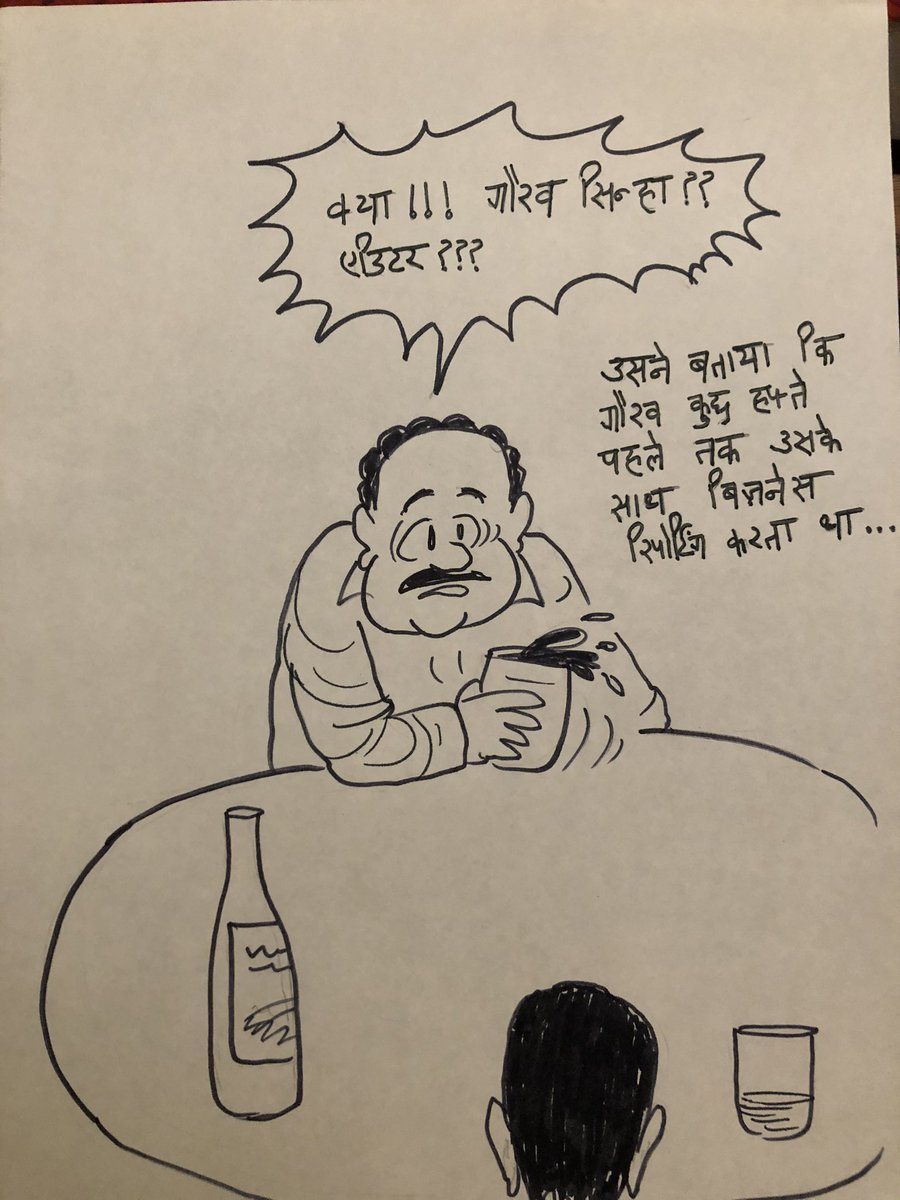 क्या!!! गौरव सिन्हा??
एडिटर???
उसने बताया कि
गौरव कुछ हफ्ते
पहले तक उसके
साथ बिज़नेस
रिपोर्टिंग करता था...